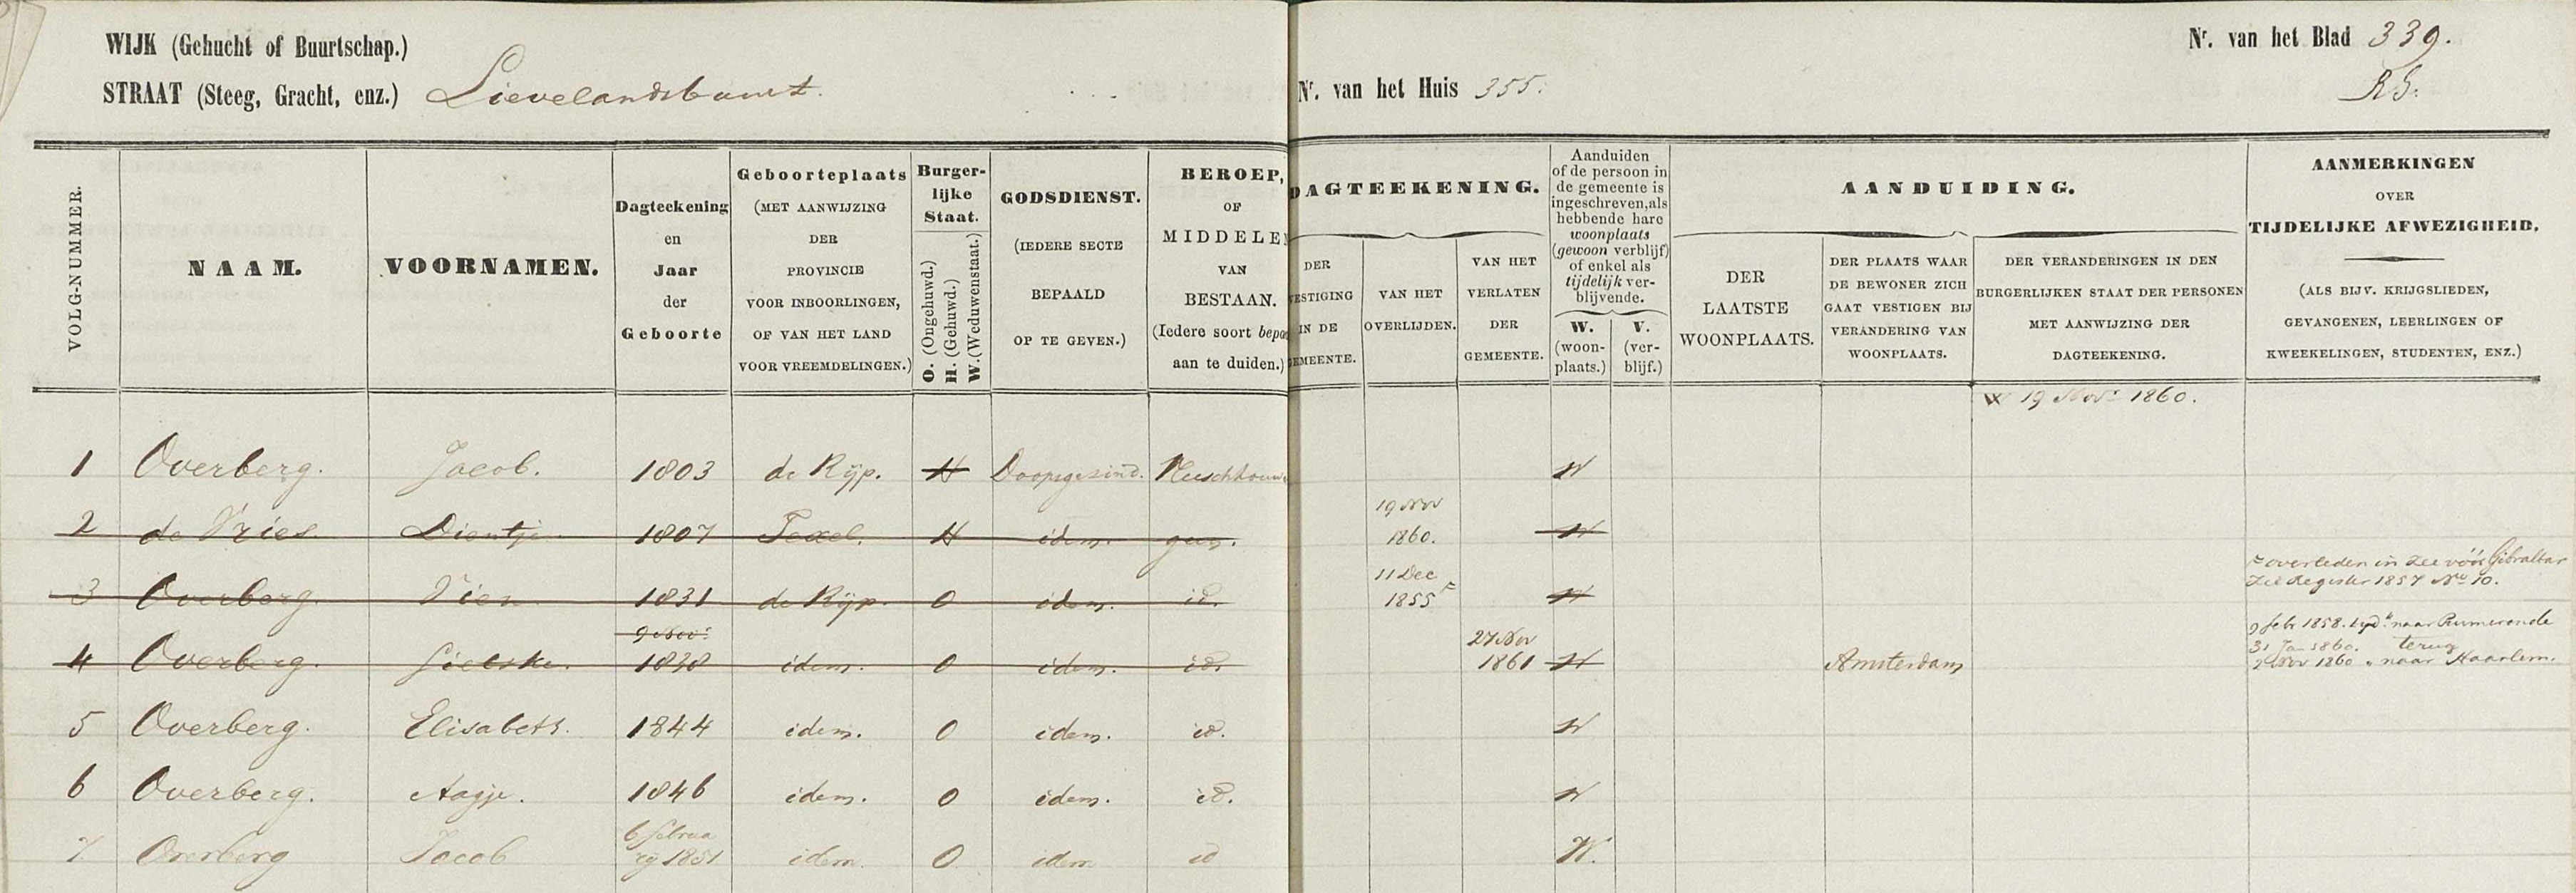 WIJK (Gehucht of Buurtschap.)
STRAAT (Steeg, Gracht, enz.) Lievelandsbuurt.
Nr. van het Huis 355.
Nr. van het Blad 339.
RS.
VOLG-NUMMER.
NAAM.
VOORNAMEN.
Dagteekening
en
Jaar
der
Geboorte
Geboorteplaats
(MET AANWIJZING
DER
PROVINCIE
VOOR INBOORLINGEN,
OF VAN HET LAND
VOOR VREEMDELINGEN.)
Burger-
lijke
Staat.
O. (Ongehuwd.)
H. (Gehuwd.)
W. (Weduwenstaat.)
GODSDIENST.
(IEDERE SECTE
BEPAALD
OP TE GEVEN.)
BEROEP,
OF
MIDDELEN
VAN
BESTAAN.
(Iedere soort bepaa
aan te duiden.)
DAGTEEKENING.
DER
VESTIGING
IN DE
GEMEENTE.
VAN HET
OVERLIJDEN.
VAN HET
VERLATEN
DER
GEMEENTE.
Aanduiden
of de persoon in
de gemeente is
ingeschreven, als
hebbende hare
woonplaats
(gewoon verblijf)
of enkel als
tijdelijk ver-
blijvende.
W.
(woon-
plaats.)
V.
(ver-
blijf.)
AANDUIDING.
DER
LAATSTE
WOONPLAATS.
DER PLAATS WAAR
DE BEWONER ZICH
GAAT VESTIGEN BIJ
VERANDERING VAN
WOONPLAATS.
DER VERANDERINGEN IN DEN
BURGERLIJKEN STAAT DER PERSONEN
MET AANWIJZING DER
DAGTEEKENING.
AANMERKINGEN
OVER
TIJDELIJKE AFWEZIGHEID.
(ALS BIJV. KRIJGSLIEDEN,
GEVANGENEN, LEERLINGEN OF
KWEEKELINGEN, STUDENTEN, ENZ.)
W 19 Nov. 1860.
1 Overberg. Jacob. 1803 de Rijp. H Doopsgezind. Vleeschhouwe W
19 Nov
2 de Vries. Dientje. 1807 Texel. H idem. geen. 1860. W
11 Dec
overleden in zee vóór Gibraltar
3 Overberg. Vien 1831 de Rijp. O idem. id. 1855 W
Zie Register 1857 No 10.
9 Nov. 27 Nov
9 Febr 1858. tijd. naar Purmerende
31 Jan 1860. terug
4 Overberg. 1838 idem. O idem. id. 1861 W Amsterdam
2 Nov 1860 " naar Haarlem.
5 Overberg. Elisabeth. 1844 idem. O idem. id. W
6 Overberg. Aagje. 1846 idem. O idem. id. W
6 Februa
7 Overberg Jacob rij 1851 idem. O idem id W.